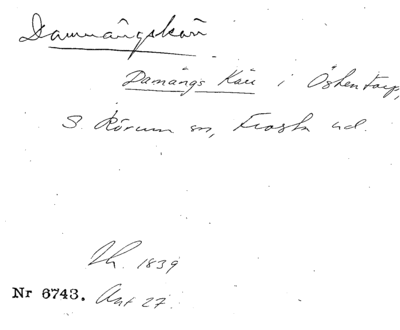 Dammängskärr
Damängs Kärr i Öshentorp,
S. Rörum sn, Frosta hd.
Lh. 1839
Nr 6743. Ant 27.